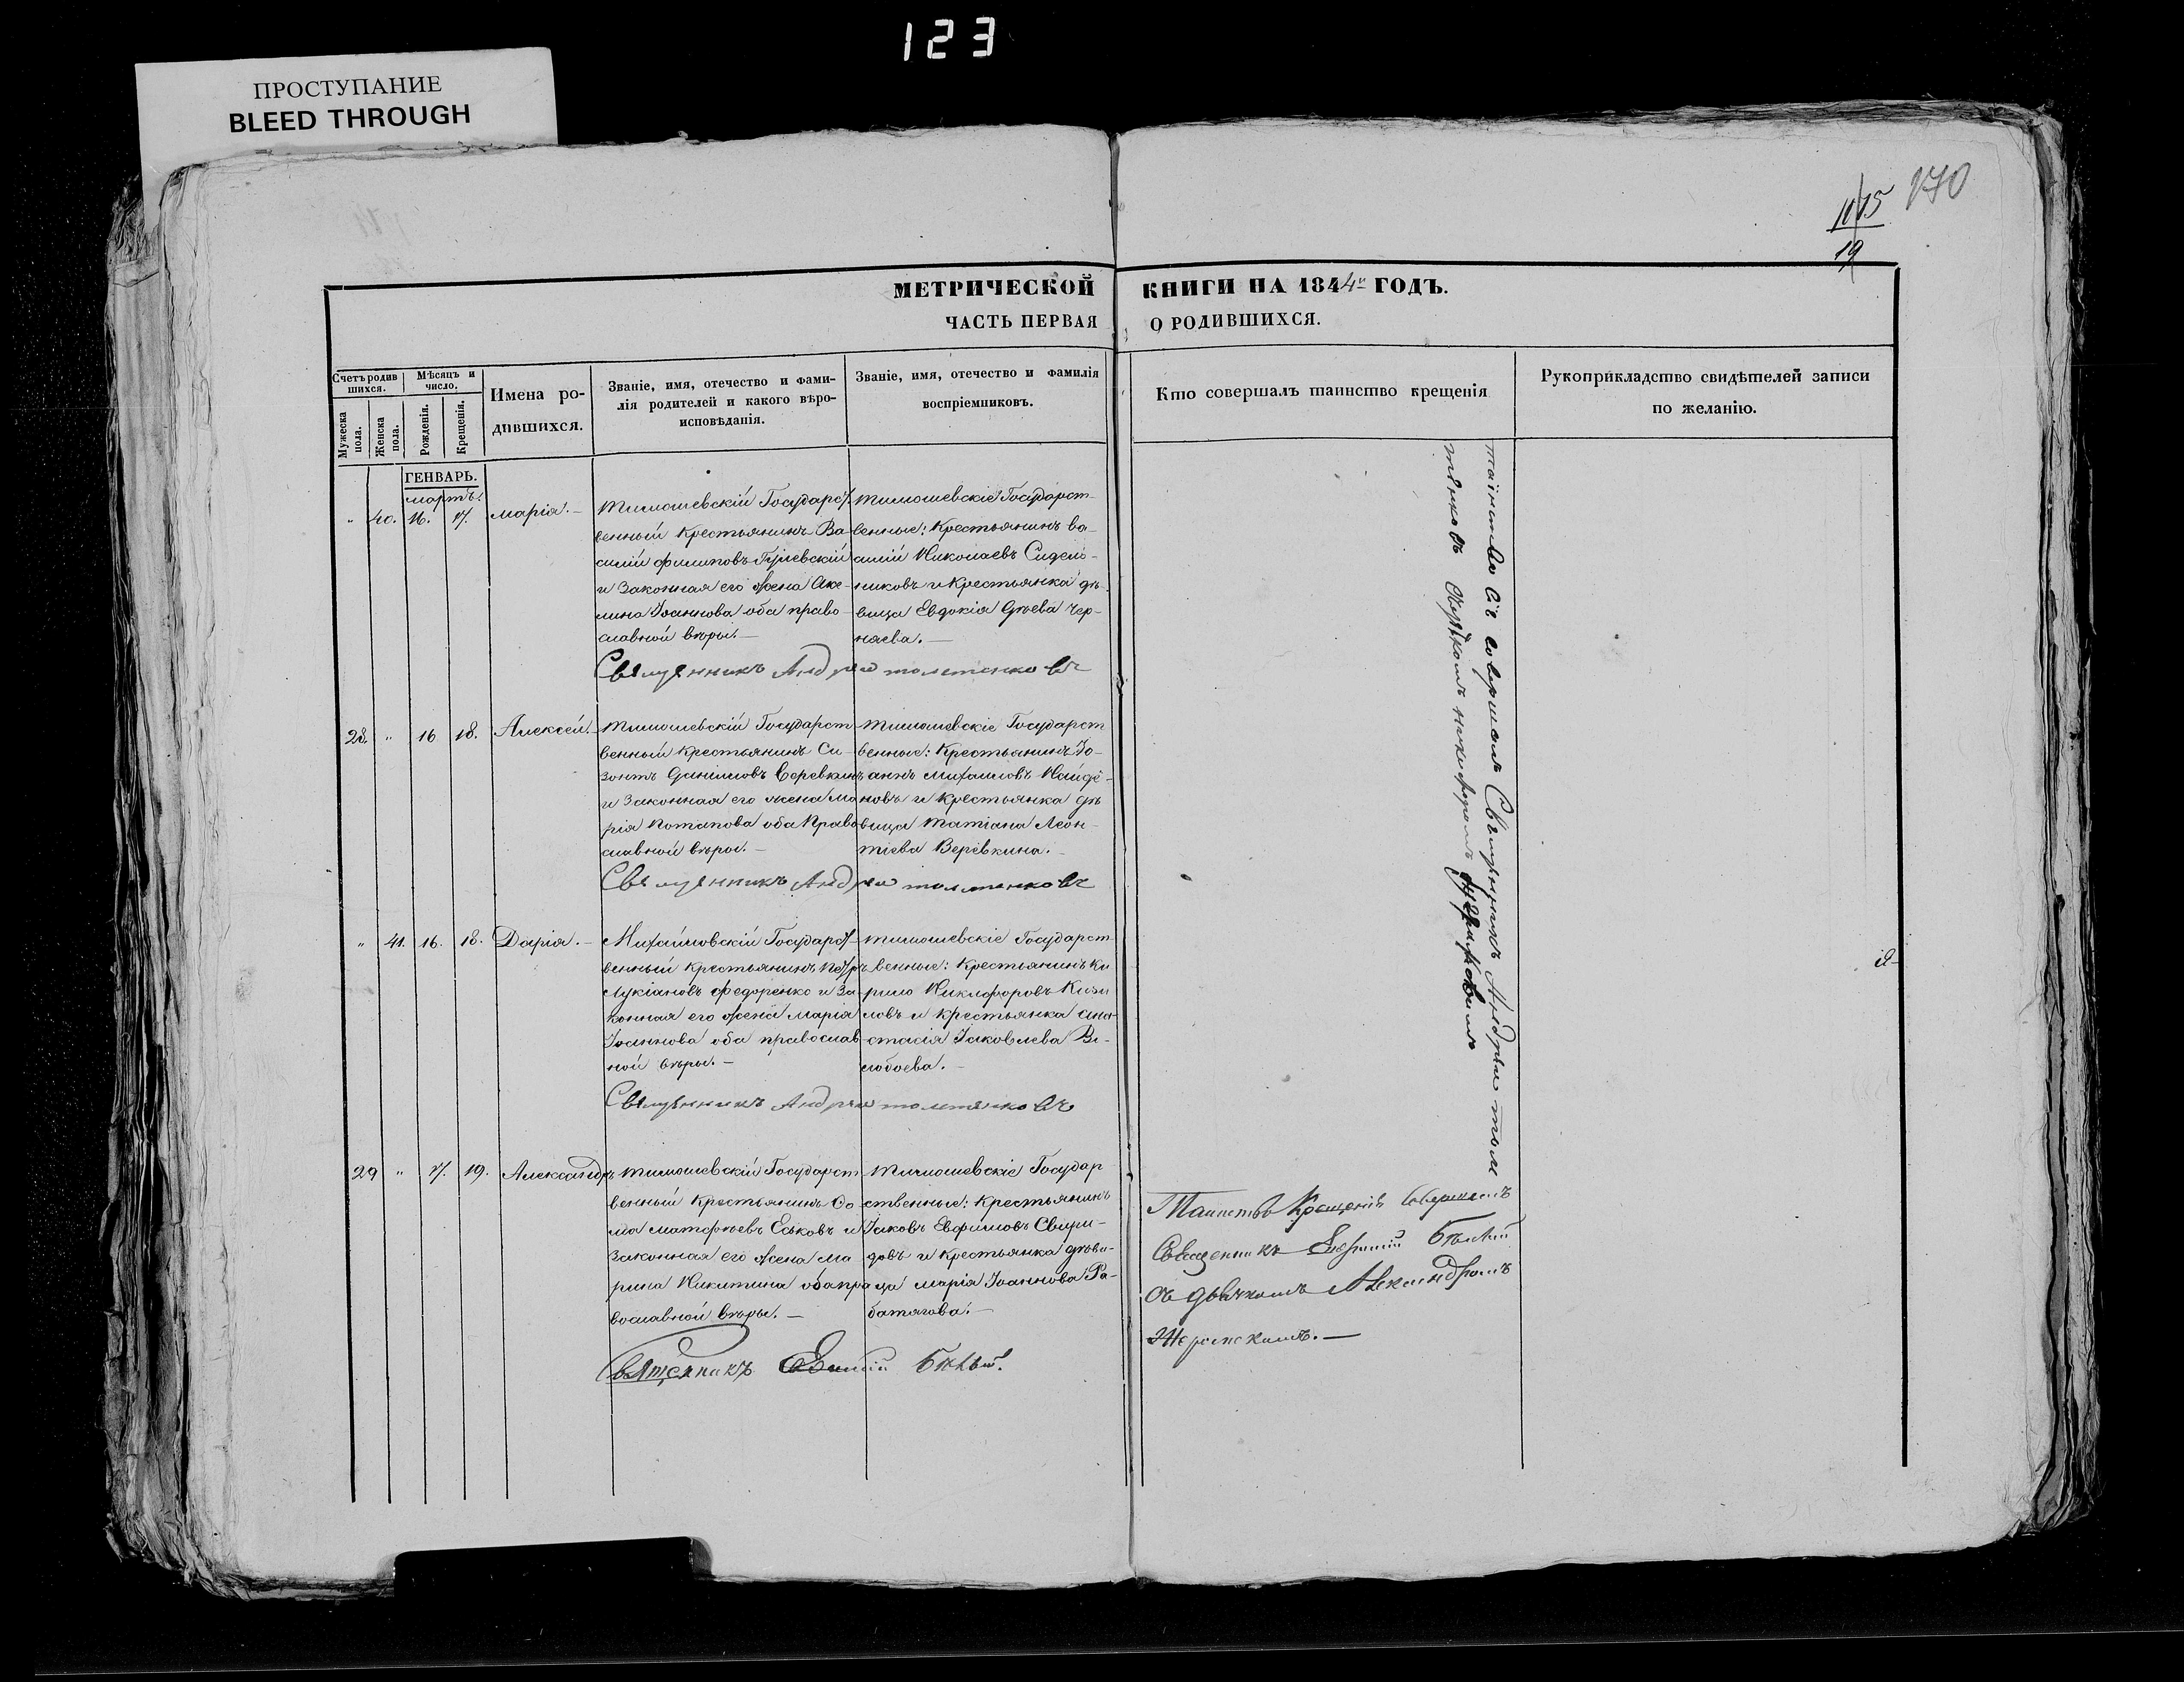 123
ПРОСТУПАНИЕ
BLEED THROUGH
1175
19
170
МЕТРИЧЕСКОЙ КНИГИ НА 1844й ГОДЪ.
ЧАСТЬ ПЕРВАЯ О РОДИВШИХСЯ.
Счетъ родив
шихся.
Мужеска
пола.
Женска
пола.
Мѣсяцъ и
число.
Рожденія.
Крещенія.
Имена ро-
дившихся.
Званіе, имя, отечество и фами-
лія родителей и какого вѣро-
исповѣданія.
Званіе, имя, отечество и фамилія
воспріемниковъ.
Кто совершалъ таинство крещенія
Рукоприкладство свидѣтелей записи
по желанію.
ГЕНВАРЬ.
мартъ.
" 40. 16. 17. Марія.-
Тимошевскій Государст-
венный крестьянинъ Ва-
силій Филиповъ
и законная его жена Аке-
лина Іоаннова оба право-
славной вѣры.-
Тимошевскіе Государст-
венные: крестьянинъ Ва-
силій Николаевъ Сидель-
никовъ и крестьянка дѣ-
вица Евдокія Черня-
няева.-
Священникъ Андрей
28. " 16 18. Алексѣй.
Тимошевскій Государст
венный крестьянинъ Си-
зонтъ Даниловъ Веревкинъ
и законная его жена Ма
рія Потапова оба Право
славной вѣры.-
Тимошевскіе Государст
венные: крестьянинъ Іо-
аннъ Михаиловъ Найдё-
новъ и крестьянка дѣ
вица Татіана Леон-
тіева Верёвкина.
Священникъ Андрей
" 41. 16. 18. Дарія.-
Михайловскій Государст-
венный крестьянинъ Петръ
Лукіановъ Федоренко и За-
конная его жена Марія
Іоаннова оба православ-
ной вѣры.-
Тимошевскіе Государст
венные: крестьянинъ Ки
рило Никифоровъ
ловъ и крестьянка Ана-
стасія Іаковлева
лобоева.
Священникъ Андрей
29 " 17. 19. Александръ
Тимошевскій Государст
венный крестьянинъ Фо-
ма Матфѣевъ Еськовъ и
Законная его жена Ма
рина Никитина оба пра
вославной вѣры.-
Тимошевскіе Государ
ственные: крестьянинъ
Іаковъ Евфимовъ Свири-
довъ и крестьянка дѣви-
ца Марія Іоаннова Ра-
батягова.-
Священникъ Евфимій Бѣлый.
таинство сіе совершалъ Священникъ Андрей
Таинство Крещенія совершалъ
Священникъ Евфимій Бѣлый
съ дьячкомъ Александромъ
Жеромскимъ.-